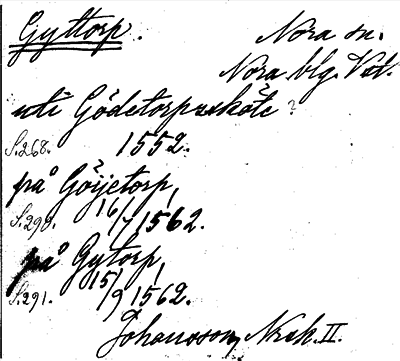 Gyttorp.
Nora sn.
Nora blg. Vstl.
uti Gödetorpsskôte ?
S.268. 1552.
på Göijetorp,
S.290. 16/7 1562.
på Gytorp,
S.291. 15/9 1562.
Johansson, Noraskog II.